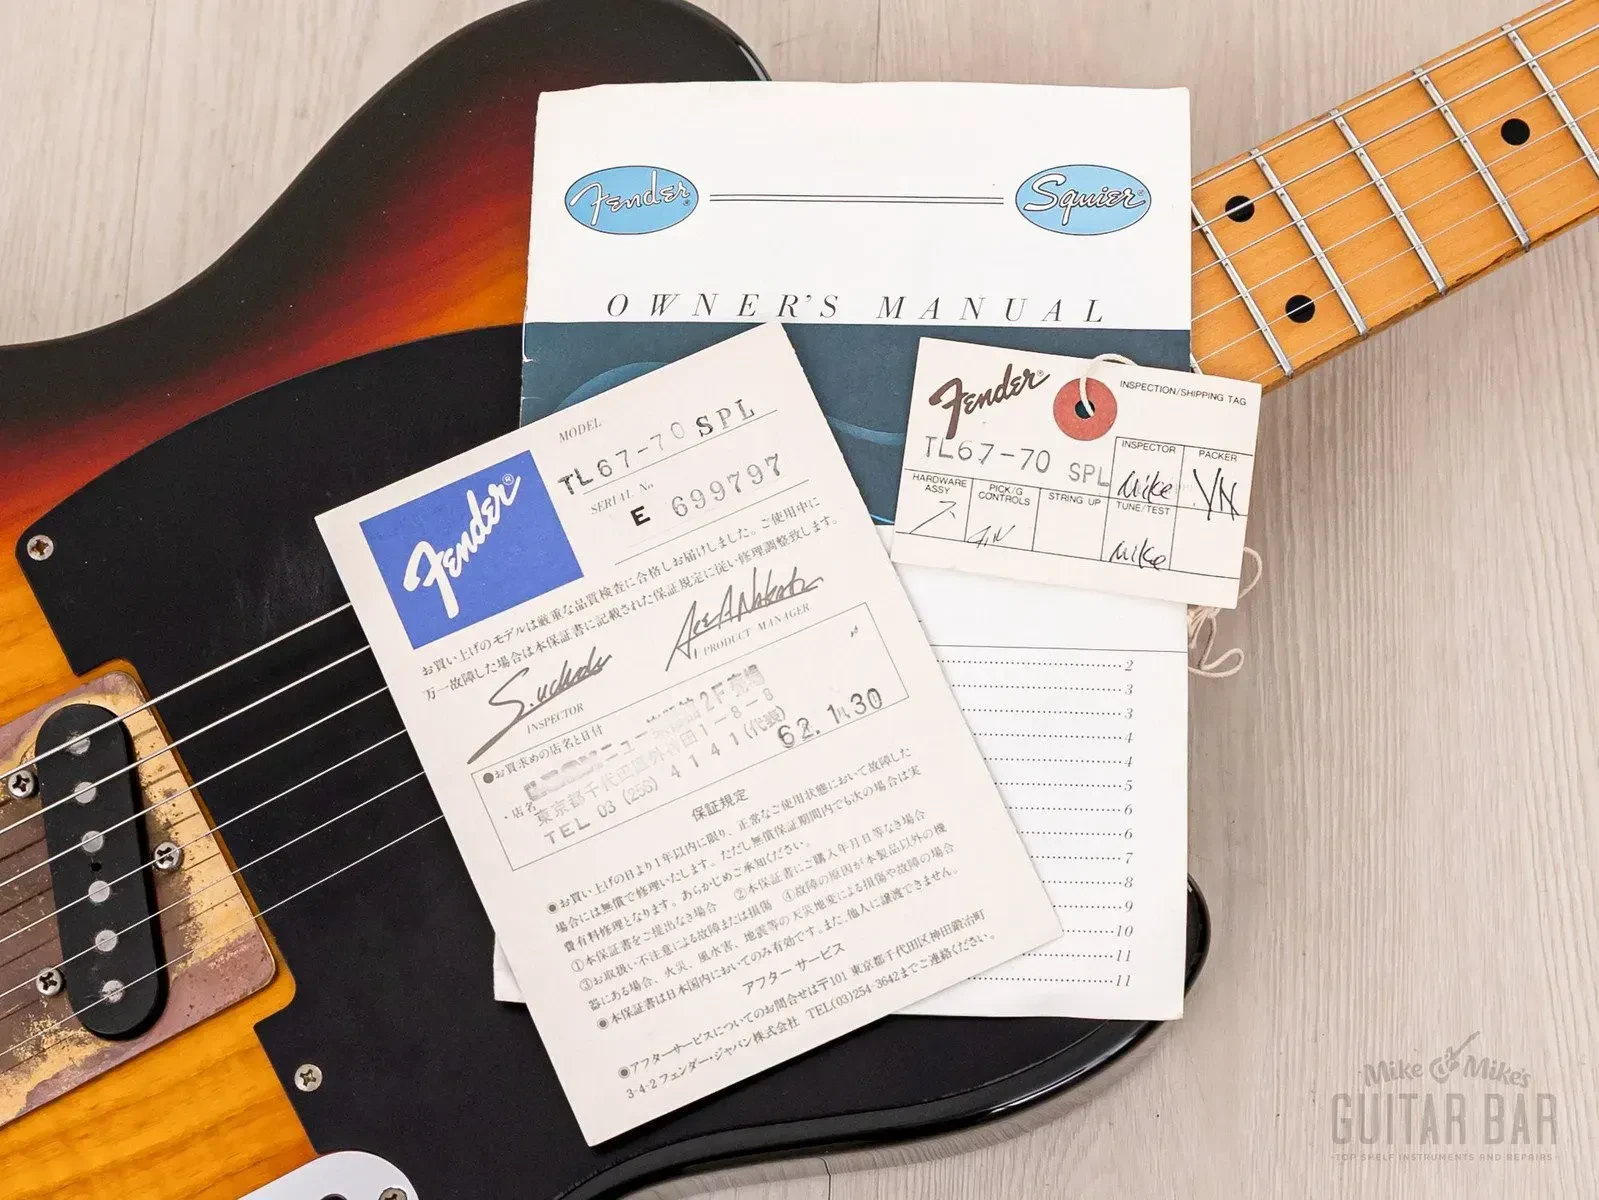 Fender®
Squier®
OWNER'S MANUAL
Fender®
INSPECTION/SHIPPING TAG
TL67-70 SPL
INSPECTOR
PACKER
Mike
VN
HARDWARE
ASSY
PICK/G
CONTROLS
STRING UP
TUNE/TEST
Mike
2
3
3
4
4
5
6
6
7
8
9
10
11
11
Fender®
MODEL
TL67-70 SPL
SERIAL No.
E 699797
お買い上げのモデルは厳重な品質検査に合格しお届けしました。ご使用中に
万一故障した場合は本保証書に記載された保証規定に従い修理調整致します。
INSPECTOR
PRODUCT MANAGER
●お買求めの店名と日付
2F売場
・店名
東京都千代田区外神田1-8-8
TEL 03 (255) 4141 (代表)
62. 1. 30
保証規定
●お買い上げの日より1年以内に限り、正常なご使用状態において故障した
場合には無償で修理いたします。ただし無償保証期間内でも次の場合は実
費有料修理となります。あらかじめご承知ください。
①本保証書をご提出なき場合 ②本保証書にご購入年月日等なき場合
③お取扱い不注意による故障または損傷 ④故障の原因が本製品以外の機
器にある場合、火災、風水害、地震等の天災地変による損傷や故障の場合
●本保証書は日本国内においてのみ有効です。また、他人に譲渡できません。
アフターサービス
●アフターサービスについてのお問合せは〒101 東京都千代田区神田鍛冶町
3-4-2 フェンダー・ジャパン株式会社 TEL(03)254-3642までご連絡ください。
Mike & Mike's
GUITAR BAR
TOP SHELF INSTRUMENTS AND REPAIRS